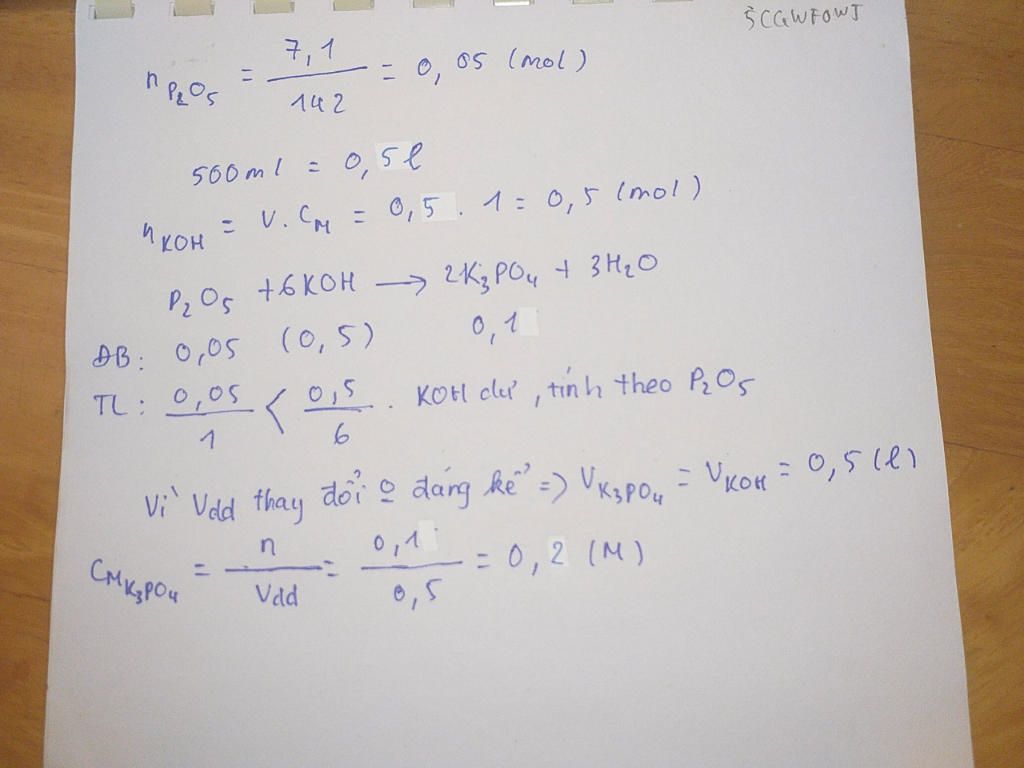 5CGWFOWJ
n P₂O₅ = 7,1 / 142 = 0,05 (mol)
500ml = 0,5l
n KOH = V. C_M = 0,5 . 1 = 0,5 (mol)
P₂O₅ + 6KOH → 2K₃PO₄ + 3H₂O
ĐB: 0,05 (0,5) 0,1
TL: 0,05/1 < 0,5/6 . KOH dư, tính theo P₂O₅
Vì Vdd thay đổi o đáng kể => V K₃PO₄ = V KOH = 0,5 (l)
C_M K₃PO₄ = n / Vdd = 0,1 / 0,5 = 0,2 (M)